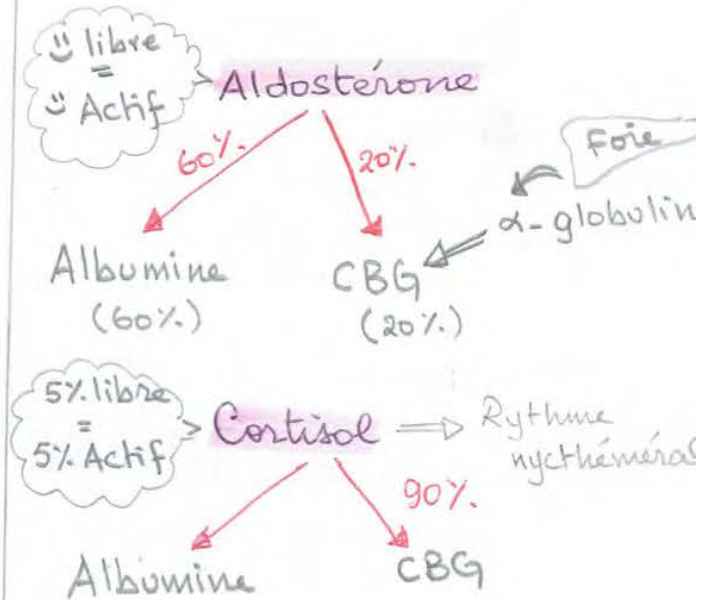 libre
=
Actif
Aldostérone
60%.
20%.
Foie
α-globulin
Albumine
CBG
(60%.)
(20%.)
5%.libre
=
5%.Actif
Cortisol
Rythme
nycthéméral
90%.
Albumine
CBG